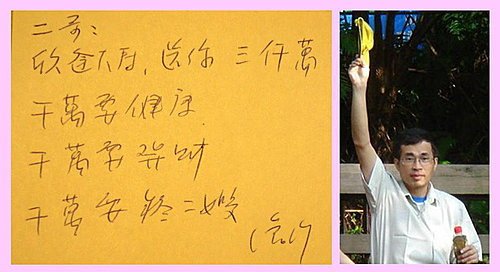 二哥：
欣逢大寿，送你 三仟萬
千萬要健康
千萬要發財
千萬要疼二嫂